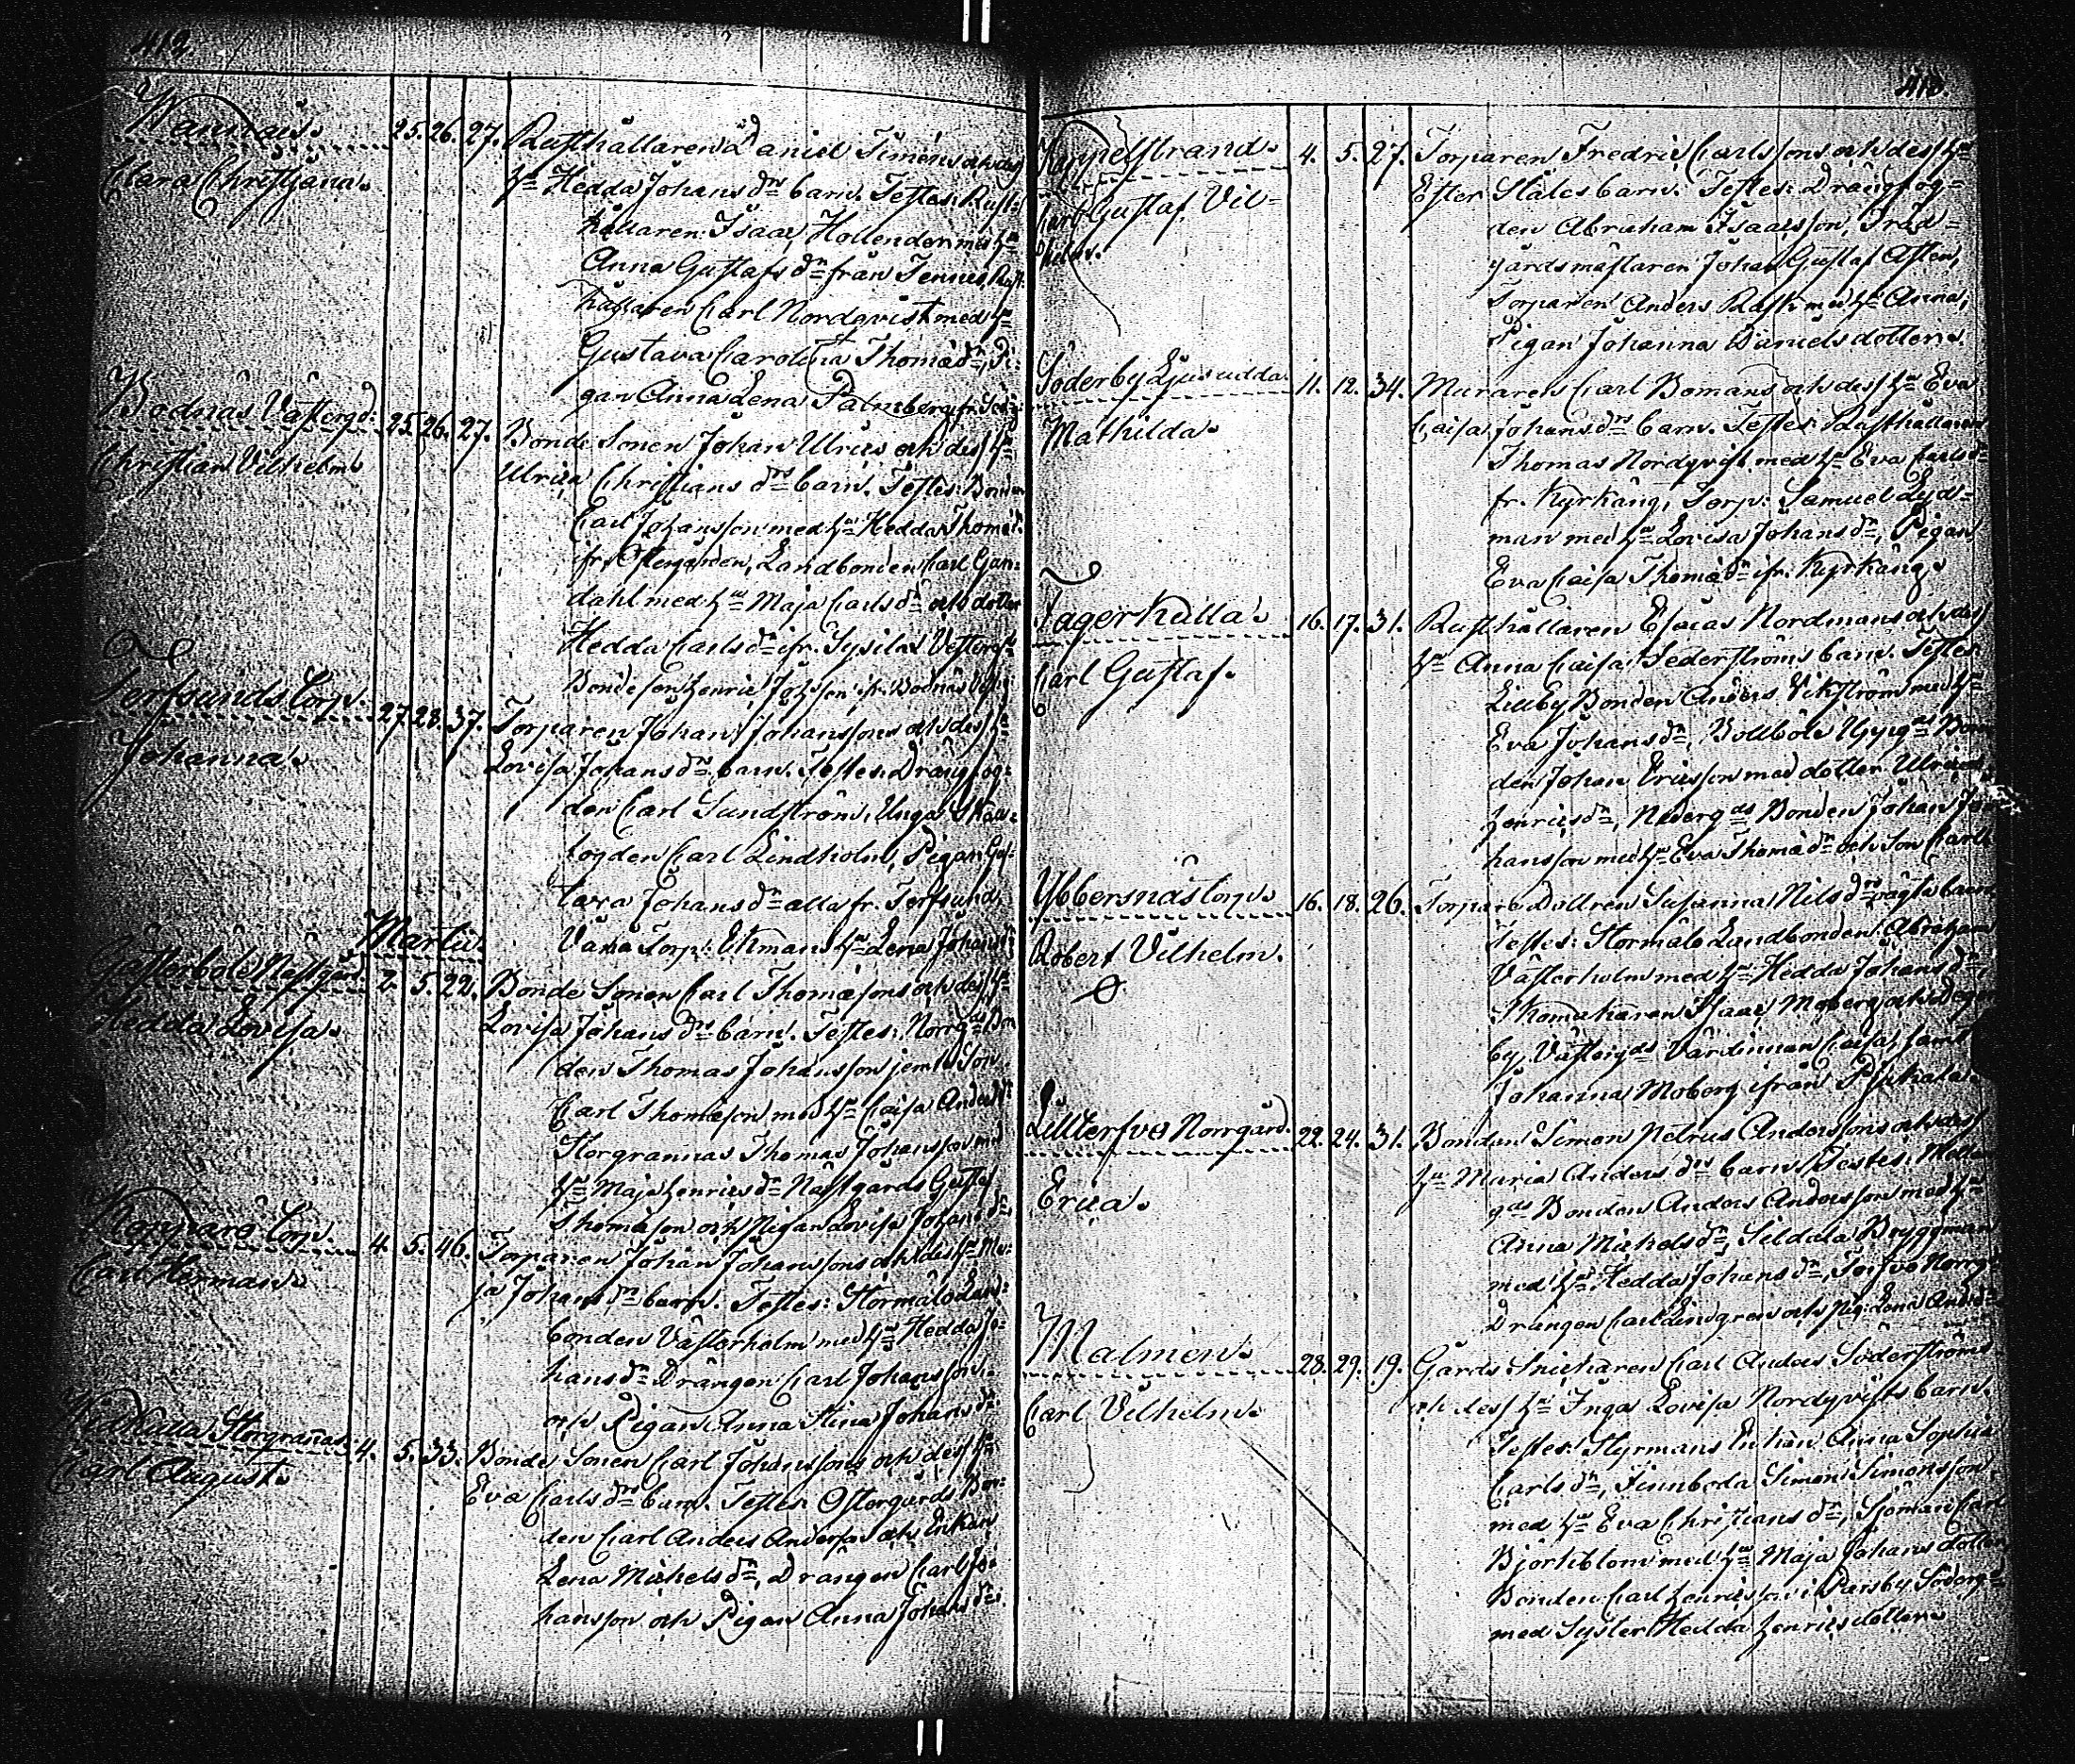 412
Wannais. 25. 26. 27. Rusthållaren Daniel Timéns och dess
Clara Christjana. Hu Hedda Johans drs barn. Testes: Rust-
hållaren Isaac Hollender med Hu
Anna Gustafs dr från Tenius, Rust-
hållaren Carl Nordqvist med Hu
Gustava Carolina Thomæ dr, Pi-
gan Anna Lena Palmberg fr.
Bodnäs Västergd: 25. 26. 27. Bonde Sonen Johan Ulrics och dess Hu
Christian Vilhelm Ulrica Christians drs barn. Testes: Bonden
Carl Johansson med Hu Hedda Thomæ dr
ifr. Östergården, Landbonden Carl Gran-
dahl med Hu Maja Carls dr och dotter
Hedda Carls dr ifr. Sysilax Vesterg.
Bonde son Henric Johsson ifr. Bodnäs
Terfsunds Torp. 27. 28. 37. Torparen Johan Johanssons och dess Hu
Johanna. Lovisa Johans drs barn. Testes: Drängfog-
den Carl Sundström, Unga Skau-
fogden Carl Lindholm, Pigan Gus-
tava Johans dr alla fr. Terfsund,
Vaxa Torp: Ekmans Hu Lena Johans dr
Martii.
Gästerböle Nästgård 2. 5. 22. Bonde Sonen Carl Thomæsons och dess Hu
Hedda Lovisa. Lovisa Johans drs barn. Testes: Norrgds Bon
den Thomas Johansson jemte Son
Carl Thomæson med Hu Caisa Anders dr
Storgrannas Thomas Johansson med
Hu Maja Henrics dr Nästgårds Gustaf
Thomæson och Pigan Lovisa Johans dr
Torp. 4. 5. 46. Torparen Johan Johanssons och dess Hu Ma-
Carl Herman. ja Johans drs barn. Testes: Stormälö Land-
bonden Västerholm med Hu Hedda Jo-
hans dr Drängen Carl Johansson
och Pigan Anna Stina Johans dr
Storgrañas 4. 5. 33. Bonde Sonen Carl Johanssons och dess Hu
Carl August. Eva Carls drs barn. Testes: Östergårds Bon-
den Carl Anders Anderss. och Enkan
Lena Michels dr, Drängen Carl Jo-
hansson och Pigan Anna Johans dr
413.
Kappelstrand. 4. 5. 27. Torparen Fredric Carlssons och dess Hu
Carl Gustaf Vil- Ester Ståles barn. Testes: Drängfog-
helm. den Abraham Isaacsson, Träd-
gårdsmästaren Johan Gustaf Asten,
Torparen Anders Rask med Hu Anna,
Pigan Johanna Daniels dotter.
Söderby Ljusudda. 11. 12. 34. Muraren Carl Bomans och dess Hu Eva
Mathilda. Caisa Johans drs barn. Testes: Rusthållaren
Thomas Nordqvist med Hu Eva Carls dr
fr. Kyrkäng, Torp: Samuel Lyds-
man med Hu Lovisa Johans dr, Pigan
Eva Caisa Thomæ dr ifr. Kyrkäng.
Jagerkulla. 16. 17. 31. Rusthållaren Esaias Nordmans och dess
Carl Gustaf. Hu Anna Caisa Sederströms barn. Testes
Lillby Bonden Anders Vikström med Hu
Eva Johans dr, Bollböle Bon
den Johan Ericsson med dotter Ulrica
Henrics dr, Nederg ds Bonden Johan Jo
hansson med Hu Eva Thomæ dr och Son Carl
Ybbersnäs Torp. 16. 18. 26. Torpare Dottren Susanna Nils drs oägta barn
Robert Vilhelm. Testes: Stormälö Landbonden Abraham
Västerholm med Hu Hedda Johans dr,
Skomakaren Isaac Moberg och Deger
by Västergds Värdinnan Caisa, samt
Johanna Moberg ifrån
Lillterfvo Norrgård. 22. 24. 31. Bonden Simon Petrus Anderssons och dess
Erica. Hu Maria Anders drs barn. Testes: Mellan
gds Bonden Anders Andersson med Hu
Anna Michels dr, Sildala Bryggman
med Hu Hedda Johans dr, Terfvo Norrgds
Drängen Carl Lindgren och Pig: Lena Anders dr
Malmen. 28. 29. 19. Gårds Snickaren Carl Anders Söderströms
Carl Vilhelm. och dess Hu Inga Lovisa Nordqvists barn.
Testes: Styrmans Enkan Anna Sophia
Carls dr, Finnboda Simon Simonsson
med Hu Eva Christians dr, Sjöman Carl
Björkblom med Hu Maja Johans dotter
Bonden Carl Henricsson i Parsby Söderg
med Syster Hedda Henricsdotter.